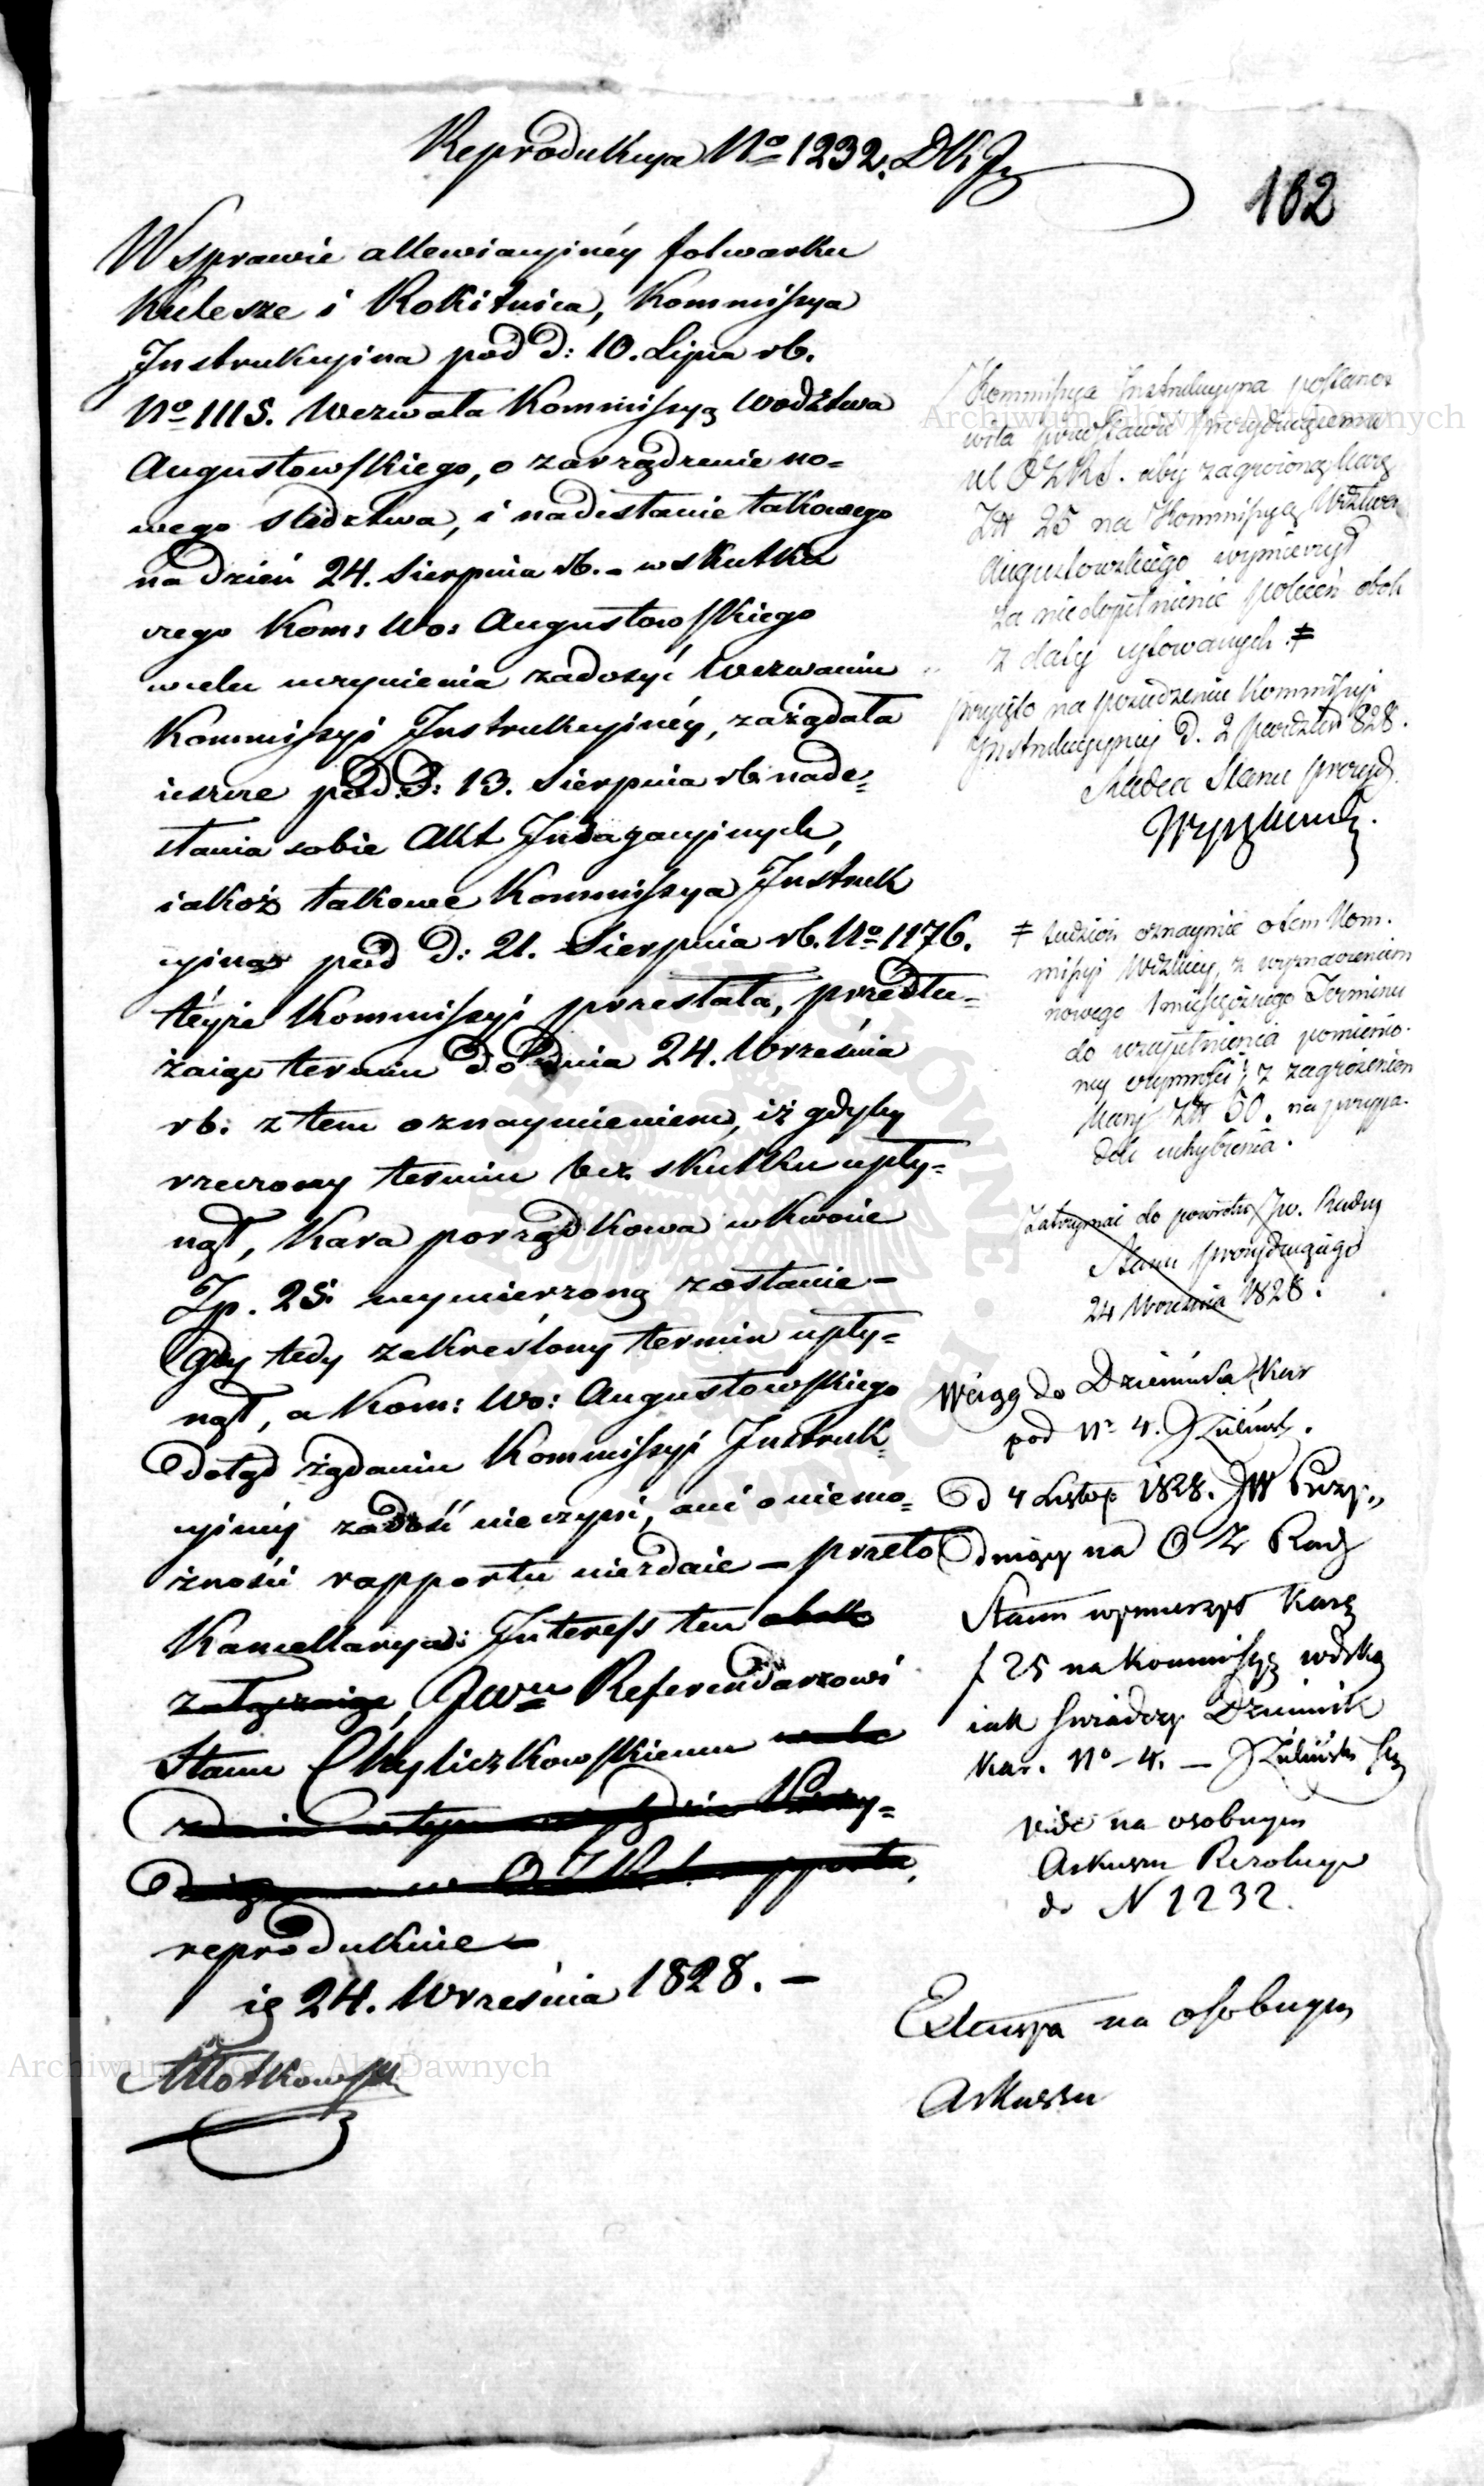 Reprodukcya No 1232. DKJ
162
W sprawie allewiacyjnéy folwarku
Kulesze i Rokitnica, Kommissya
Instrukcyjna pod d: 10. Lipca rb.
No 1115. Wezwała Kommissyą Wodztwa
Augustowskiego, o zarządzenie no=
wego śledztwa, i nadesłanie takowego
na dzień 24. Sierpnia rb. - w skutku
czego Kom: Wo: Augustowskiego
w celu uczynienia zadosyć Wezwaniu
Kommissyi Instrukcyjnéy, zażądała
ieszcze pod d: 13. Sierpnia rb nade=
słania sobie Akt Indagacyjnych,
iakoż takowe Kommissya Instruk
cyjna pod d: 21. Sierpnia rb. No 1176.
téyże Kommissyi przesłała, przedłu=
żaiąc termin do dnia 24. Września
rb: z tem oznaymieniem, iż gdyby
rzeczony termin bez skutku upły=
nął, Kara porządkowa w kwocie
Zp. 25. wymierzoną zostanie -
Gdy tedy zakreślony termin upły=
nął, a Kom: Wo: Augustowskiego
dotąd żądaniu Kommissyi Instruk
cyinéy zadość nie czyni, ani o niemo=
żności rapportu niezdaie - przeto
Kancellarya Interess ten obok
załączaiąc, JWu Referendarzowi
Stanu Chyliczkowskiemu
reprodukuie -
ię 24. Września 1828. -
Młotkowski
Kommissya Instrukcyyna postano
wiła przedstawić Prezyduiącemu
w OZRS. aby zagrożoną karę
Zł 25 na Kommissyą Wdztwa
Augustowskiego wymierzył
za niedopełnienie poleceń obok
z daty cytowanych. ‡
przyięto na posiedzeniu Kommissyi
Instrukcyynéj d. 2 Paździer 828.
Radca Stanu prezyd.
‡ tudzież oznaymić o tem Kom.
missyi Wdzkiey, z wyznaczeniem
nowego 1 miesięcznego Terminu
do uzupełnienia pomienio.
ney czynności, z zagrożeniem
kary Zł 50. na przypa.
dek uchybienia.
Zatrzymać do powrotu JW. Radcy
Stanu prezyduiącego
24 Września 1828.
Wciągg do Dziennika Kar
pod No 4. JZieliński.
D 4 Listop 1828. JW Prezy„
duiący na O Z Rady
Stanu wymierzył karę
f 25 na Kommissyę wdzką
iak świadczy Dziennik
Kar. No - 4. - JZieliński
vide na osobnym
Arkuszu Rezolucye
do N 1232.
Exkuzya na osobnym
Arkuszu
Archiwum Główne Akt Dawnych
Archiwum Główne Akt Dawnych